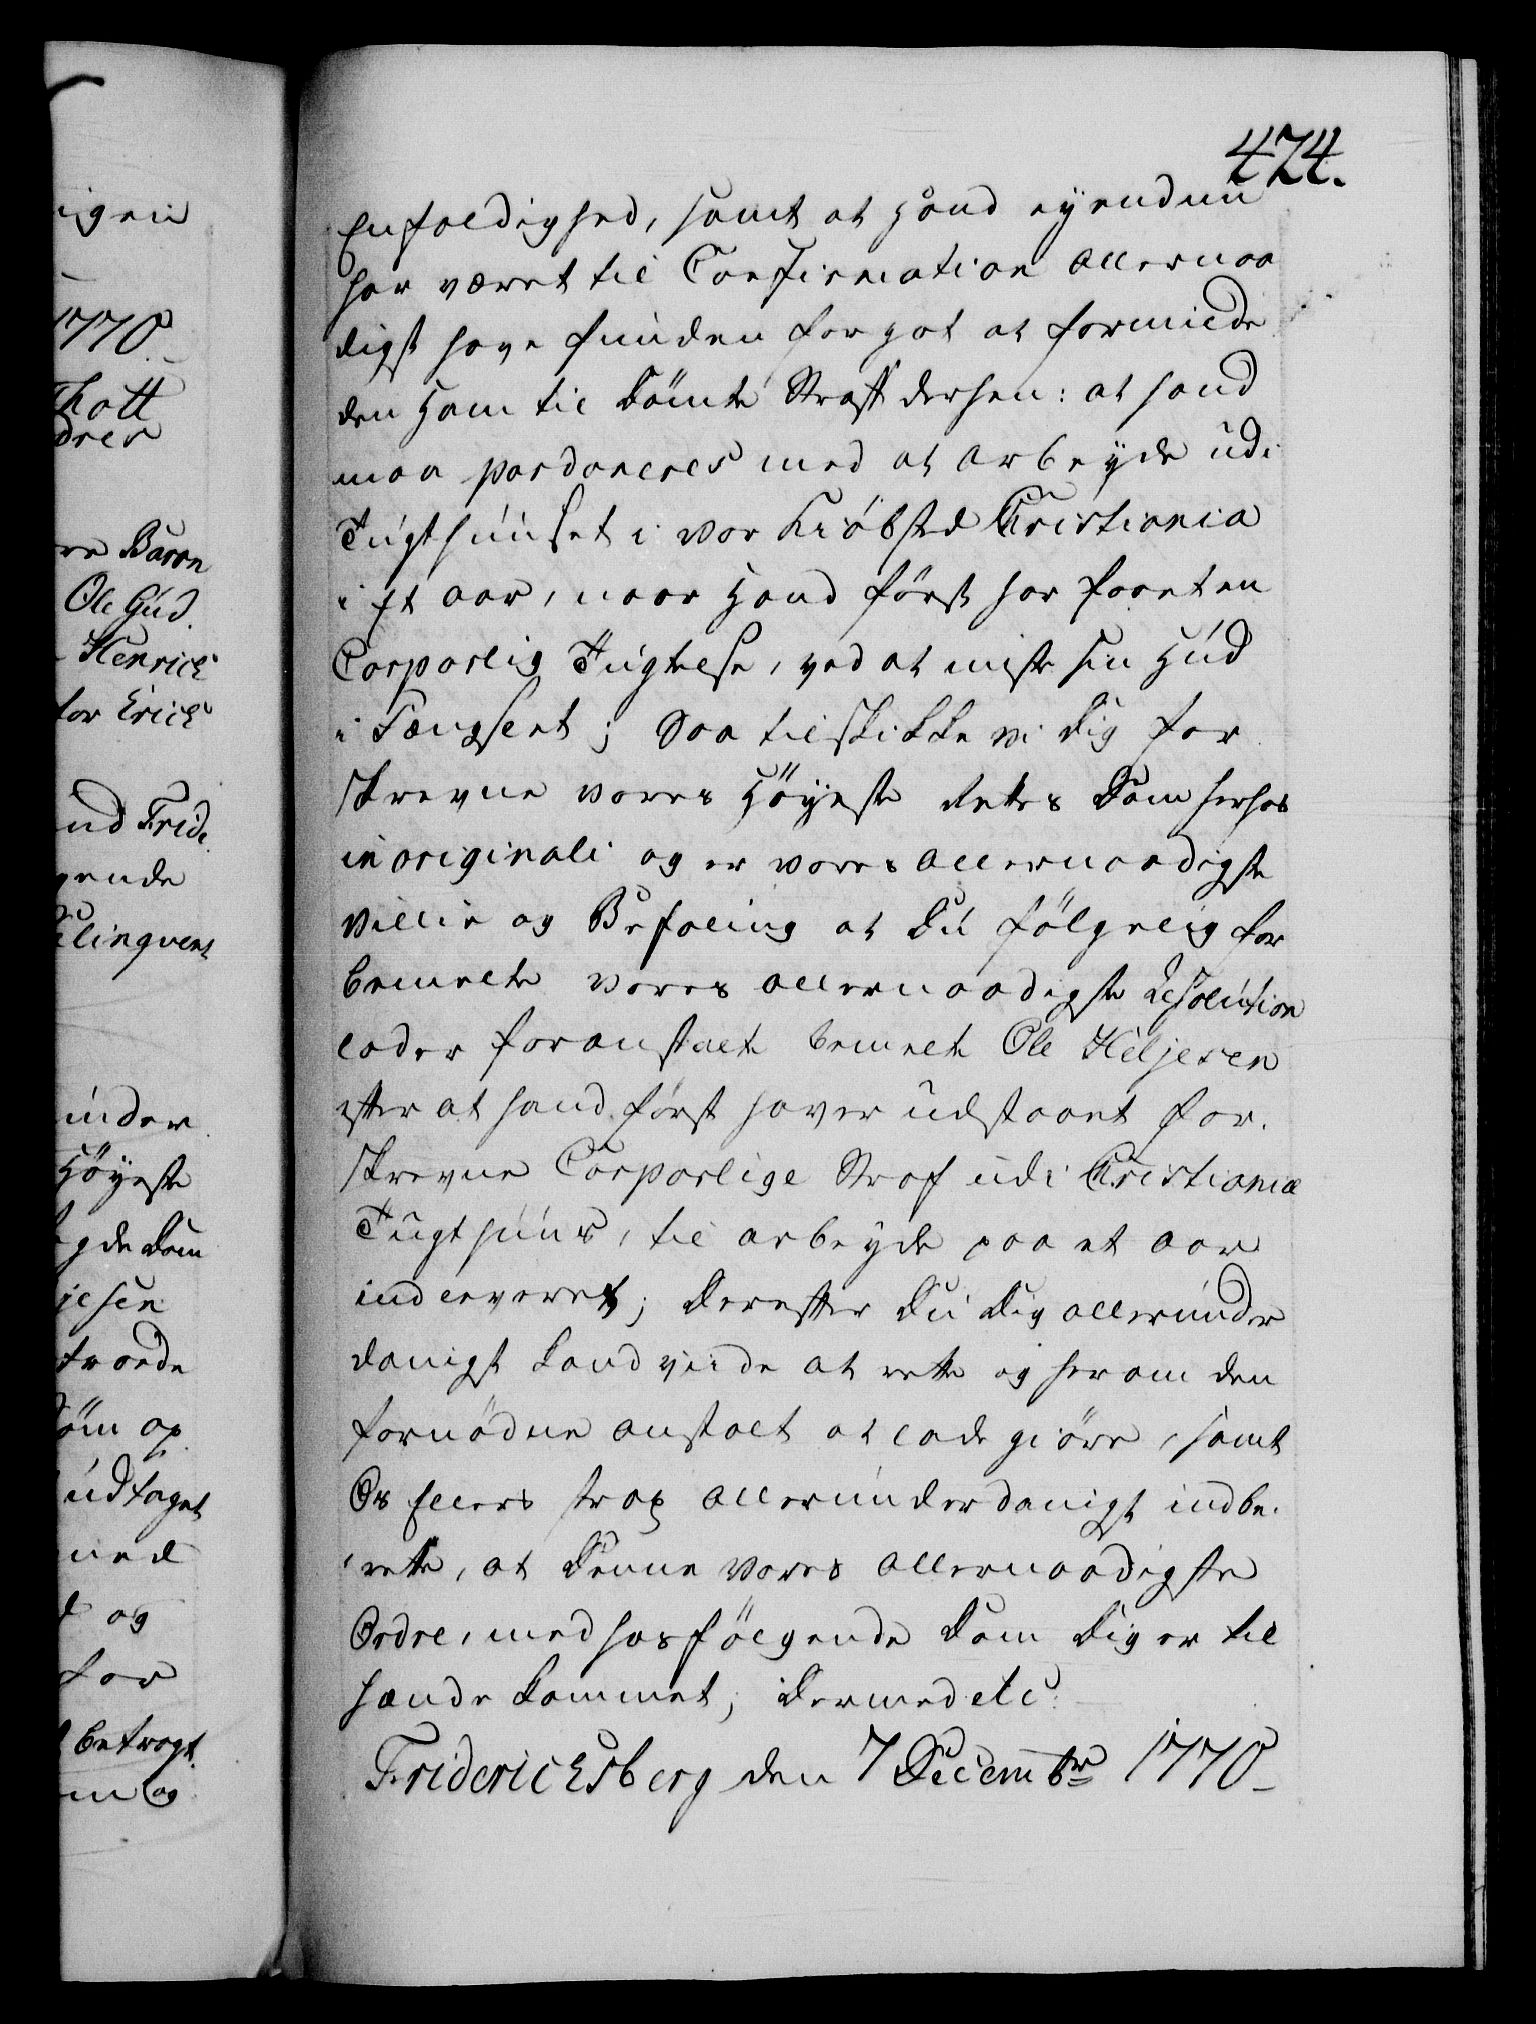 474.
Enfoldighed, samt at Hand eyendnu
har været til Confirmation allernaa
digst have funden for got at formilde
den Ham til dömte Straff dersen: at hand
maa pardoneres med at arbeyde udi
Tugthuuset i vor Kiöbsted Christiania
i Et aar, naar Hand först har faaet en
Corporlig Tugtelse, ved at miste sin Hud
i Fængselet; Saa tilskikke vi dig for
skrevne vores Höyeste Rettes Dom herhos
in originali og er vores allernaadigste
Villie og Befaling at du fölgelig for
bemelte vores allernaadigste Resolution
lader foranstalte bemelte Ole Heljesen
efter at hand först haver udstaaet for-
skrevne Corporlige Straf udi Christiania
Tugthuus, til arbeyde paa et aar
indleveret; Derefter du dig allerunder
danigst hand viide at rette og herom den
fornödne anstalt at lade giöre, samt
Os ellers strax allerunderdanigst indbe-
rette, at denne vores allernaadigste
Ordre, med hosfölgende Dom dig er til
hænde kommet; Dermed etc:
Friderichsberg den 7 Decembr 1770
igen
1770
Thott
re Baron
Ole Gud
Henrich
for Erich
und Frid
gende
elinqvent
under
Höyeste
gde Dom
jesen
traade
döm op
udtaget
med
og
for
betragt
og